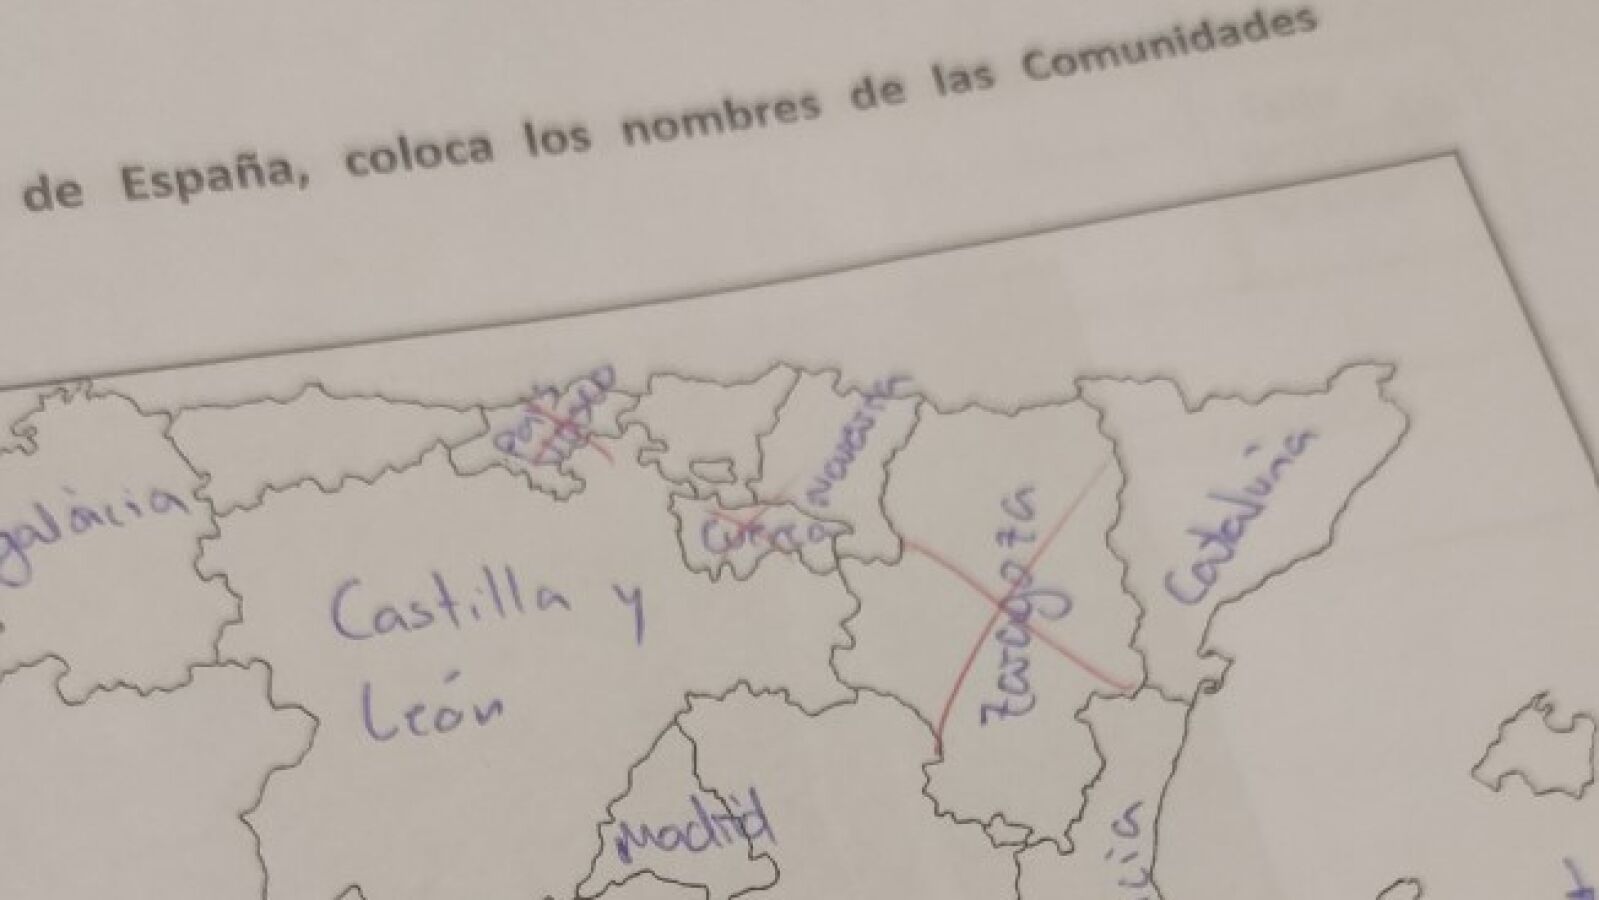 de España, coloca los nombres de las Comunidades
País
vasco
Navarra
galácia
Cuenca
Cataluña
Zaragoza
Castilla y
León
Madrid
cia